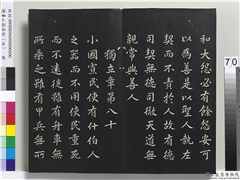 和大怨必有餘怨安可
以為善是以聖人執左
契而不責於人故有德
司契無德司徹天道無
親常與善人
獨立章第八十
小國寡民使有什伯人
之器而不用使民重死
而不遠徙雖有舟車無
所乘之雖有甲兵無所
70